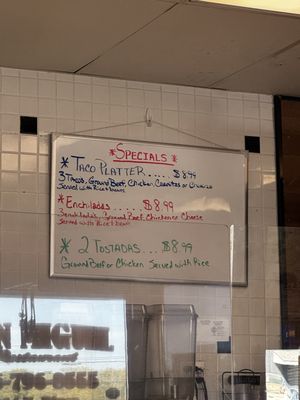 *SPECIALS*
* TACO PLATTER.... $8.99
3 Tacos, Ground Beef, Chicken, Carnitas or Chorizo
Served with Rice & Beans
* Enchiladas..... $8.99
3 enchiladas, Ground Beef, Chicken or Cheese
Served with Rice & Beans
* 2 TOSTADAS.... $8.99
Ground Beef or Chicken Served with Rice
MIGUEL
Restaurant